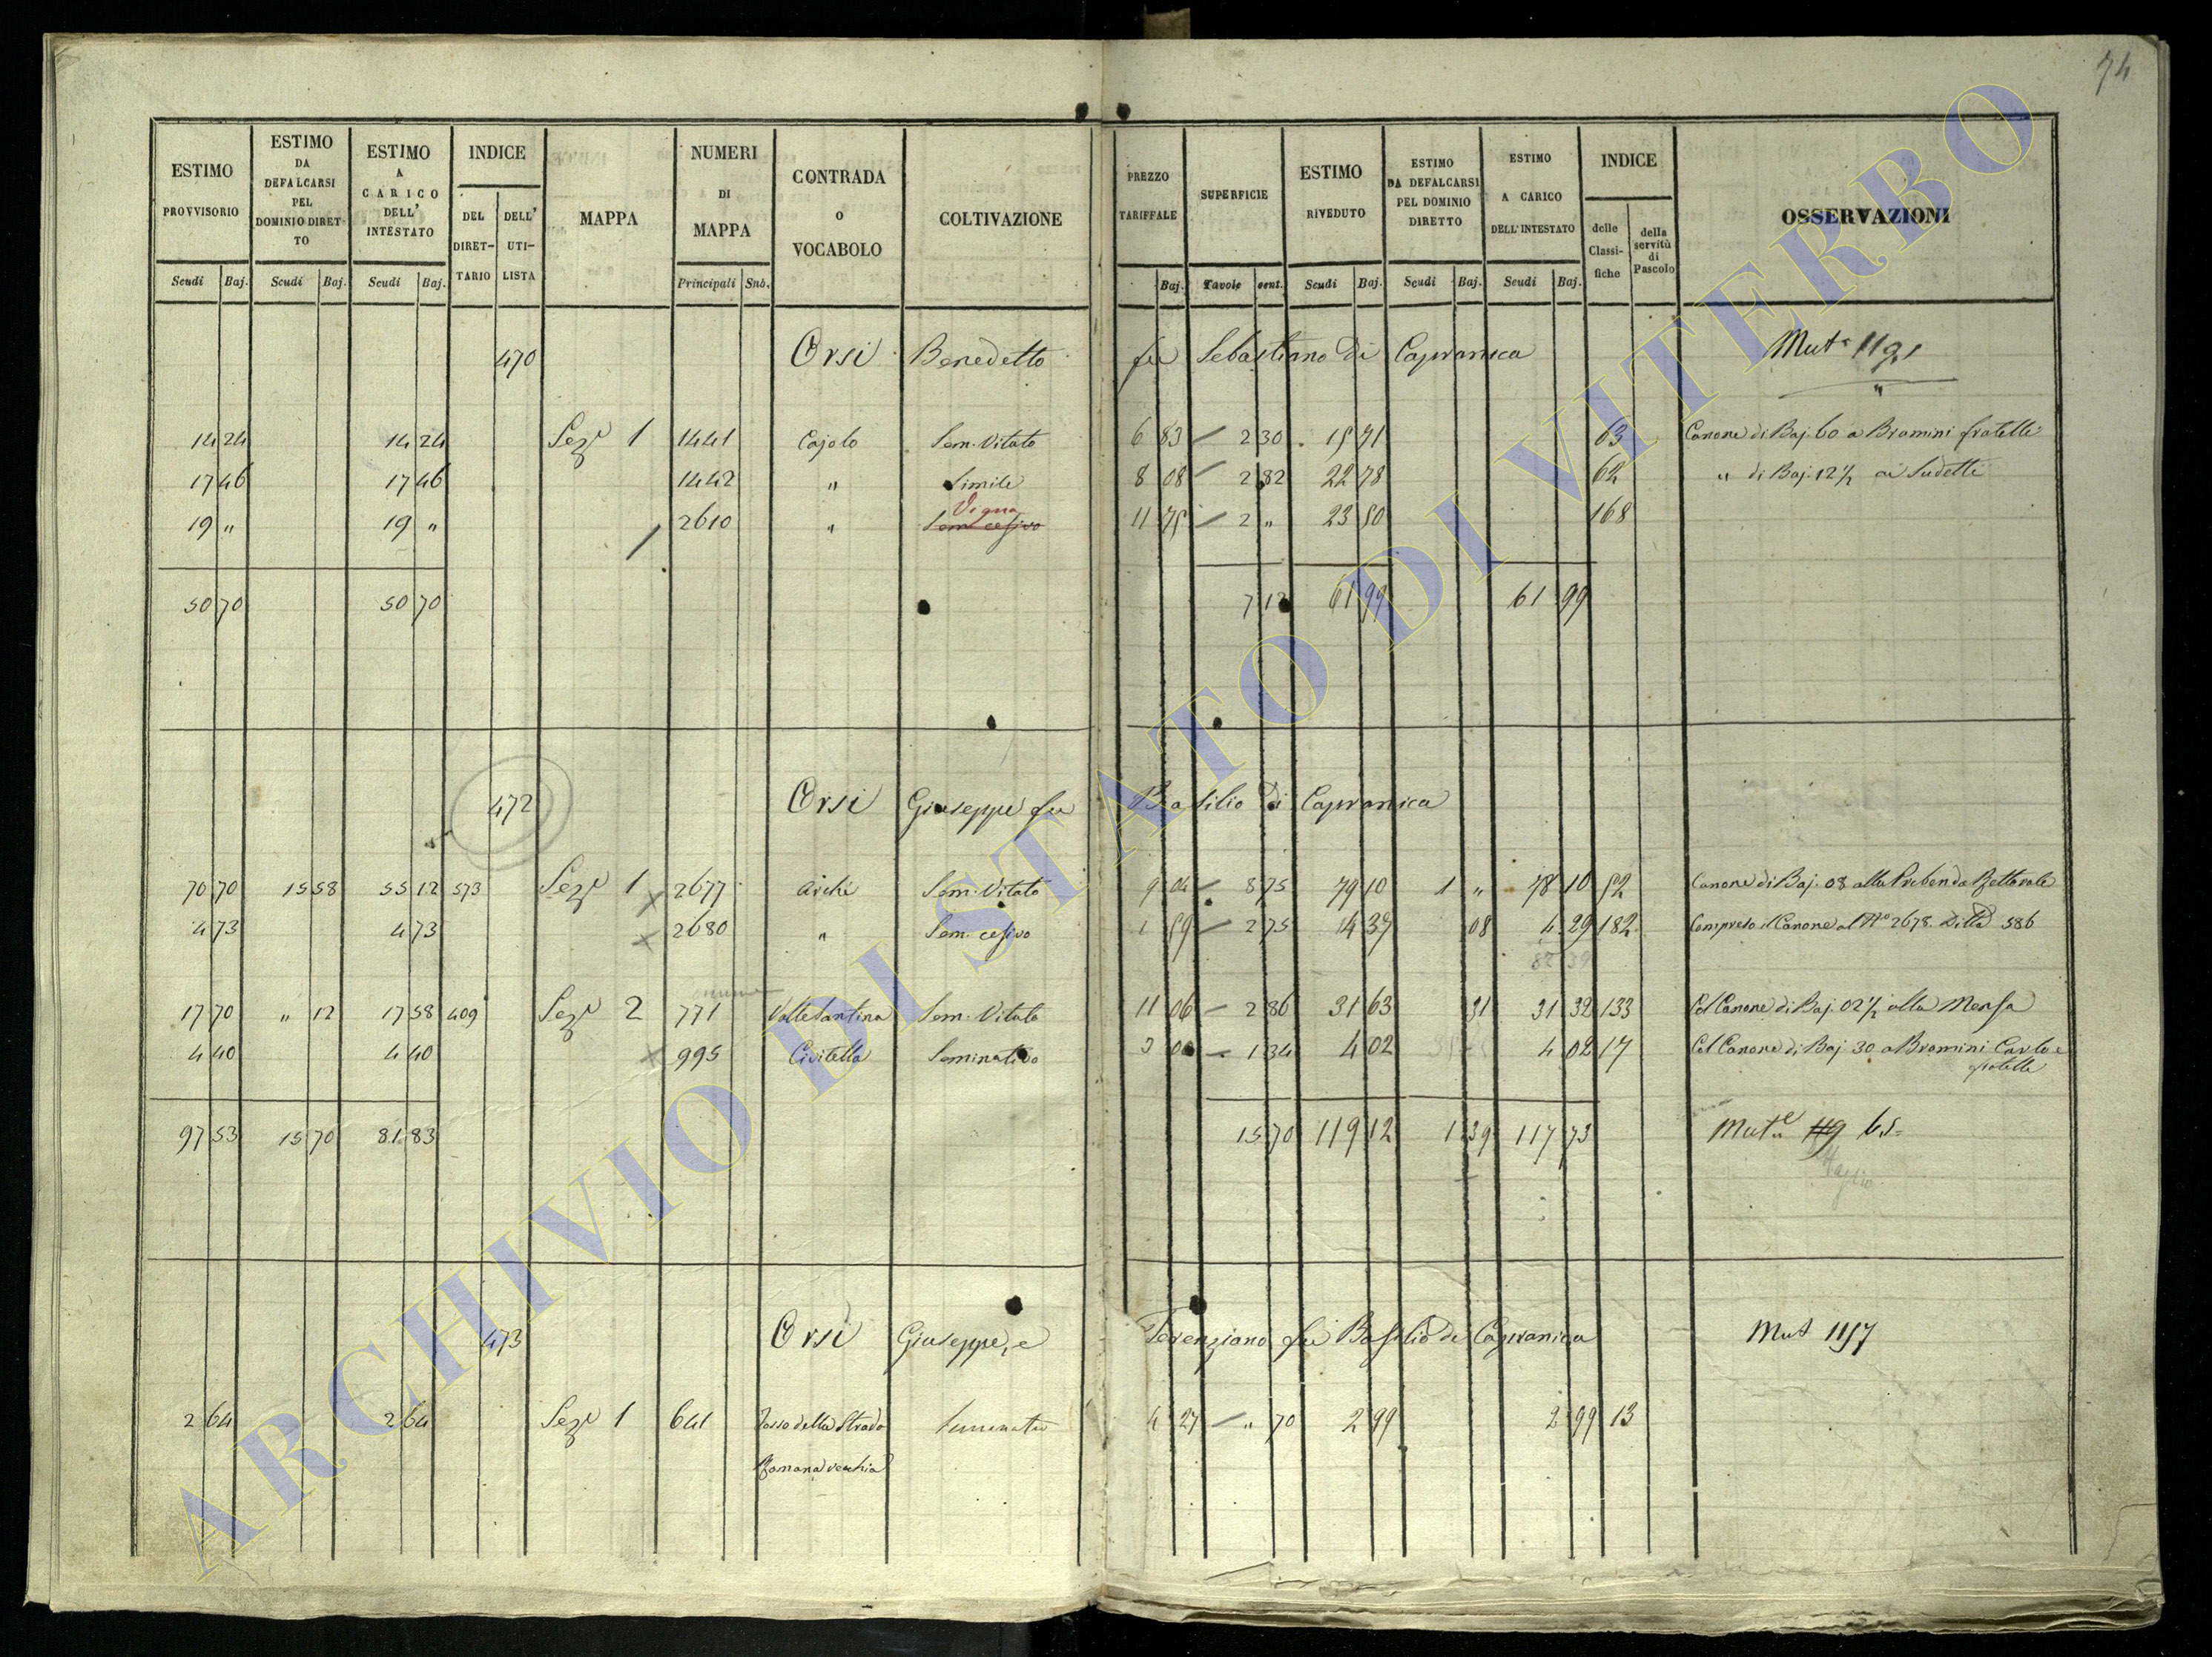 74
ESTIMO PROVVISORIO
ESTIMO DA DEFALCARSI PEL DOMINIO DIRETTO
ESTIMO A CARICO DELL' INTESTATO
INDICE
DEL DIRETTARIO
DELL' UTILISTA
MAPPA
NUMERI DI MAPPA
CONTRADA O VOCABOLO
COLTIVAZIONE
PREZZO TARIFFALE
SUPERFICIE
ESTIMO RIVEDUTO
ESTIMO DA DEFALCARSI PEL DOMINIO DIRETTO
ESTIMO A CARICO DELL'INTESTATO
INDICE
delle Classifiche
della servitù di Pascolo
OSSERVAZIONI
Scudi Baj. Scudi Baj. Scudi Baj. Principali Sub. Baj. Tavole cent. Scudi Baj. Scudi Baj. Scudi Baj.
470 Orsi Benedetto fu Sebastiano di Capranica Mut.
14 24 14 24 Sez.e 1 1441 Cajolo Sem. Vitato 6 83 2 30 15 71 63 Canone di Baj. 60 a Bramini fratelli
17 46 17 46 1442 " Simile 8 08 2 82 22 78 62 " di Baj. 12½ ai Sudetti
Vigna
19 " 19 " 2610 " Sem. cesivo 11 75 2 " 23 50 168
50 70 50 70 7 12 61 99 61 99
472 Orsi Giuseppe fu Basilio di Capranica
70 70 15 58 55 12 573 Sez.e 1 2677 Archi Sem. Vitato 9 04 8 75 79 10 1 " 78 10 52 Canone di Baj. 08 alla Prebenda
4 73 4 73 2680 " Sem. cesivo 1 59 2 75 4 37 08 4 29 182 Compreso il Canone al N.o 2678. Ditta 586
17 70 " 12 17 58 409 Sez.e 2 771 Valle Santina Sem. Vitato 11 06 2 86 31 63 31 31 32 133 Col Canone di Baj. 02½ alla Mensa
4 40 4 40 995 Civitella Seminativo 3 00 1 34 4 02 4 02 17 Col Canone di Baj 30 a Bramini Carlo e
fratelli
97 53 15 70 81 83 15 70 119 12 1 39 117 73 Mut.e
473 Orsi Giuseppe, e Terenziano fu Basilio di Capranica Mut 1157
2 64 2 64 Sez.e 1 641 Fosso della Strada 4 27 " 70 2 99 2 99 13
Romana vecchia
ARCHIVIO DI STATO DI VITERBO